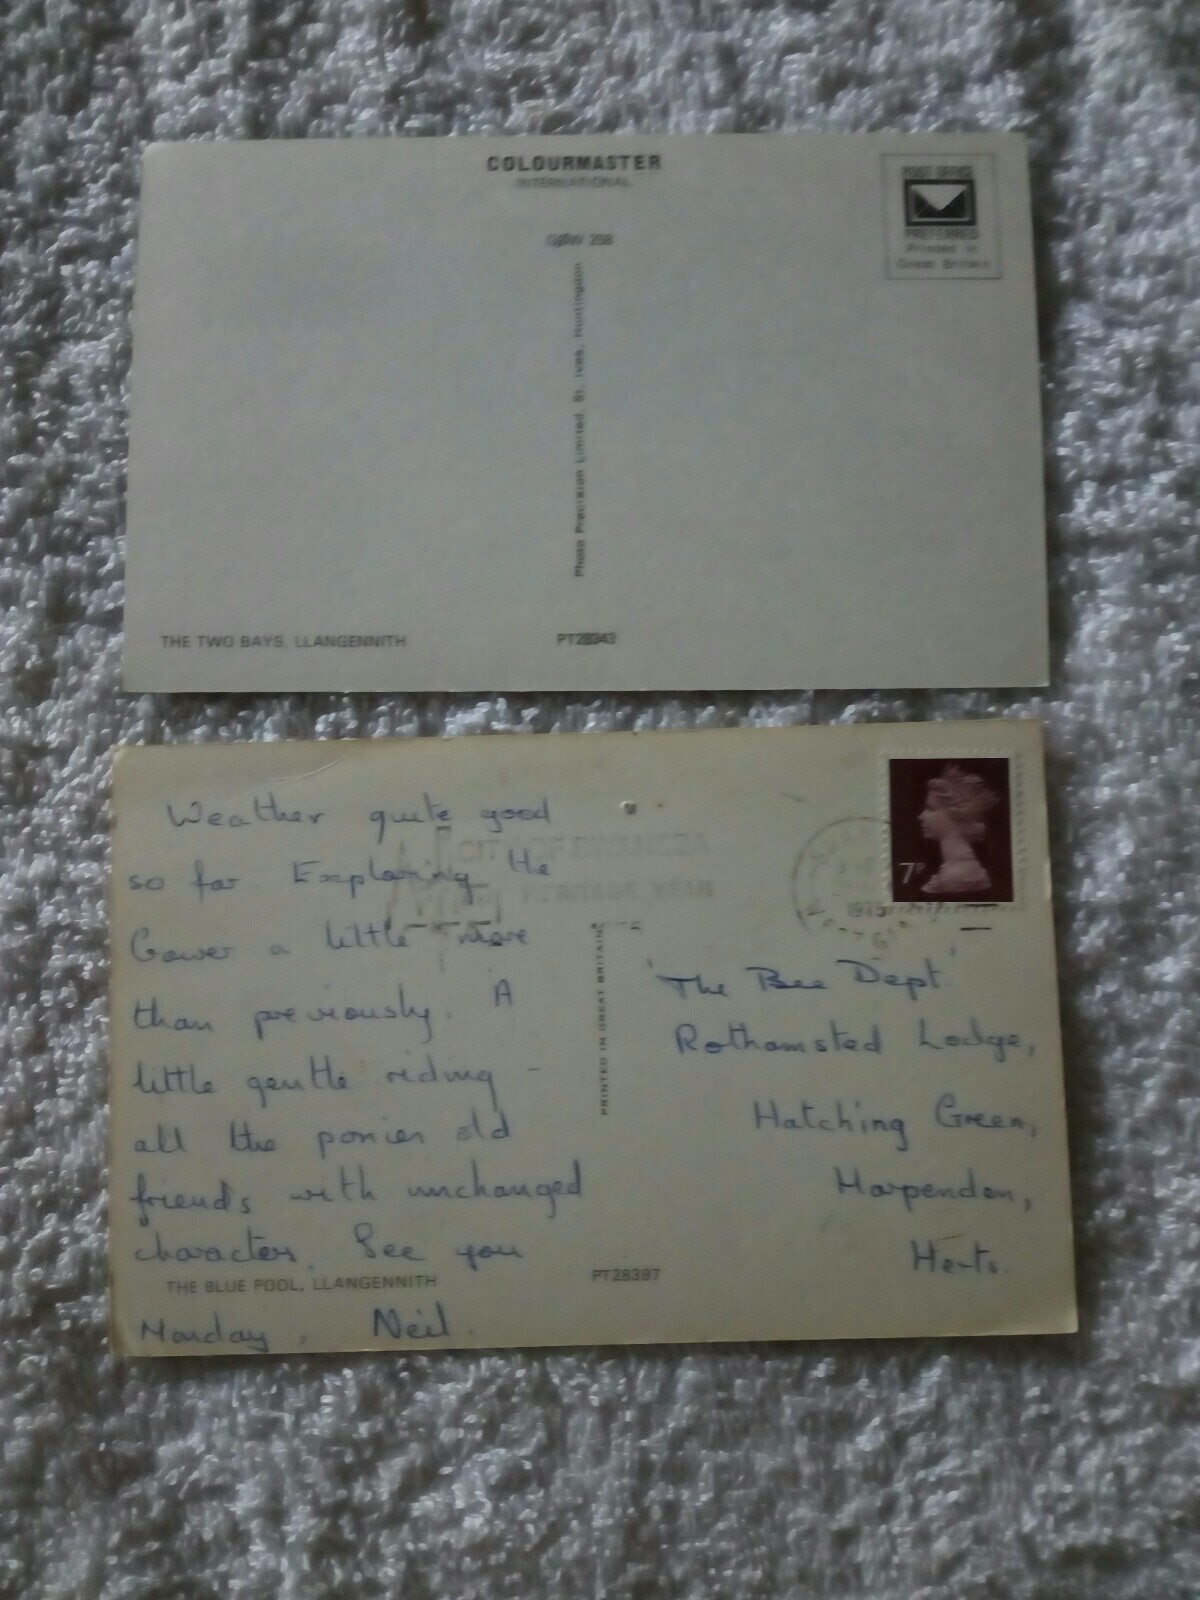 COLOURMASTER
INTERNATIONAL
POST OFFICE
PREFERRED
Printed in
Great Britain
GOW 258
Photo Precision Limited, St. Ives, Huntingdon
THE TWO BAYS, LLANGENNITH
PT28343
Weather quite good
so far. Exploring the
Gower a little more
than previously. A
little gentle riding -
all the ponies old
friends with unchanged
character. See you
Monday, Neil.
CITY OF SWANSEA
HERITAGE YEAR
1975
7P
PRINTED IN GREAT BRITAIN
'The Bee Dept.'
Rothamsted Lodge,
Hatching Green,
Harpenden,
Herts.
THE BLUE POOL, LLANGENNITH
PT28397